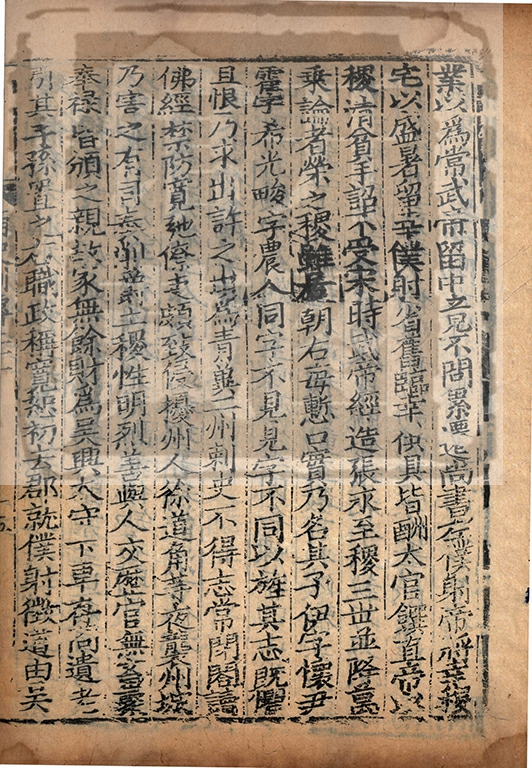 業以爲常武帝留中之見不問累遷尚書左僕射帝將幸稷
宅以盛暑留幸僕射省舊臨幸供具皆酬太官饌直帝以
稷清貧手詔不受宋時武帝經造張永至稷三世並降萬
乘論者榮之稷雖居朝右每慙口實乃名其子伊字懷尹
霍字希光畯字農人同字不見見字不同以旌其志既懼
且恨乃求出許之出爲青冀二州刺史不得志常閉閤讀
佛經禁防寬弛僚吏頗致侵擾州人徐道角等夜襲州城
乃害之有司奏削爵土稷性明烈善與人交歷官無畜聚
奉祿皆頒之親故家無餘財爲吳興太守下車存問遺老
引其子孫置之右職政稱寬恕初去郡就僕射徵道由吳